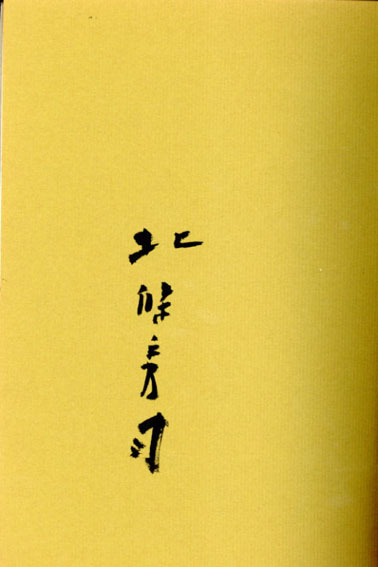 北條秀司